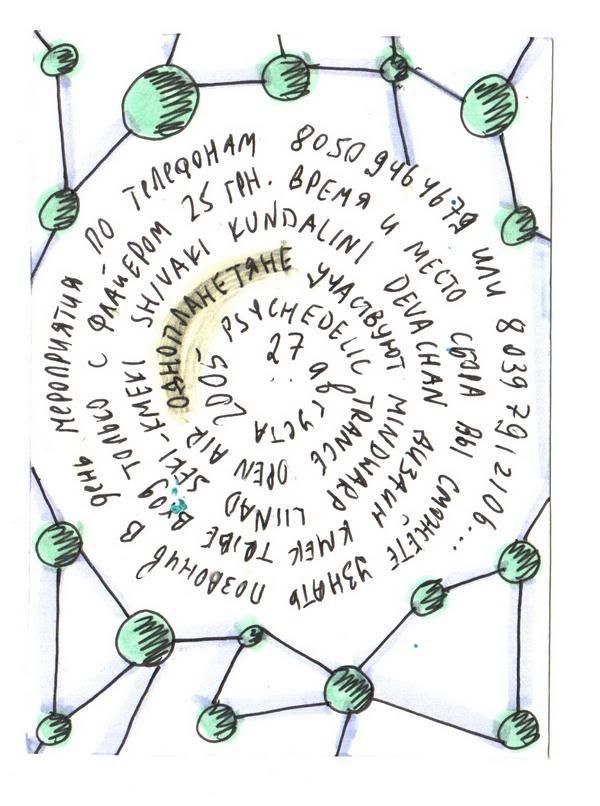 27 августа
2005 PSYCHEDELIC TRANCE OPEN AIR
ОДНОПЛАНЕТЯНЕ УЧАСТВУЮТ MINDWARP LIINAD SEKI-KMEKI
SHIVAKI KUNDALINI DEVACHAN ДИЗАЙН КМЕК TRIBE ВХОД ТОЛЬКО
С ФЛАЙЕРОМ 25 ГРН. ВРЕМЯ И МЕСТО СБОРА ВЫ СМОЖЕТЕ УЗНАТЬ ПОЗВОНИВ В ДЕНЬ
МЕРОПРИЯТИЯ ПО ТЕЛЕФОНАМ 8050 9464679 ИЛИ 8039 7912106...